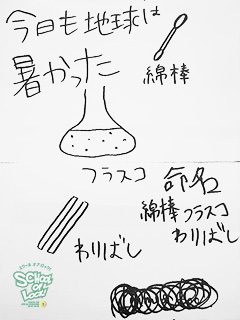 今日も地球は
暑かった
綿棒
フラスコ
命名
綿棒フラスコ
わりばし
わりばし
SCHOOL OF LOCK!